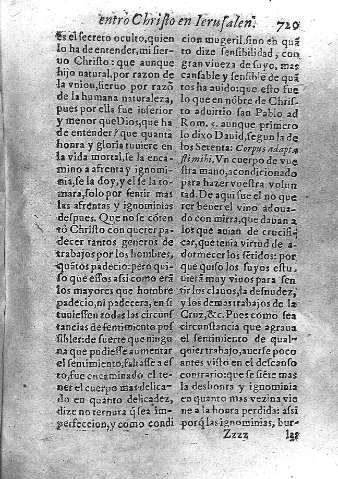 entrò Christo en Ierusalen. 720
es el secreto oculto, quien
lo ha de entender, mi sier-
uo Christo: que aunque
hijo natural, por razon de
la vnion, sieruo por razõ
de la humana naturaleza,
pues por ella fue inferior
y menor que Dios, que ha
de entender? que quanta
honra y gloria tuuiere en
la vida mortal, se la enca-
mino a afrenta y ignomi-
nia, se la doy, y el se la to-
mara, solo por sentir mas
las afrentas y ignominias
despues. Que no se cõten
tò Christo con querer pa-
decer tantos generos de
trabajos por los hombres,
quãtos padecio: pero qui-
so que essos assi como erã
los mayores que hombre
padecio, ni padecera, en si
tuuiessen todas las circuns
tancias de sentimiento pos
sibles: de suerte que ningu
na que pudiesse aumentar
el sentimiento, faltasse a es
to, fue encaminado el te-
ner el cuerpo mas delica-
do en quanto delicadez,
dize no ternura q̃ sea im-
perfeccion, y como condi
cion mugeril, sino en quã
to dize sensibilidad, con
gran viueza de suyo, mas
cansable y sensible de quã
tos ha auido: que esto fue
lo que en nõbre de Chris-
to aduirtio san Pablo ad
Rom. aunque primero
lo dixo Dauid, segun la de
los Setenta: Corpus adaptas
ti mihi, Vn cuerpo de vue
stra mano, acondicionado
para hazer vuestra volun
tad. De aqui fue el no que
rer beuer el vino adoua-
do con mirra, que dauan a
los que auian de crucifi-
car, que tenia virtud de a-
dormecer los sẽtidos: por
que quiso los suyos estu-
uiessẽ muy viuos para sen
tir los clauos, la desnudez,
y los demas trabajos de la
Cruz, &c. Pues como sea
circunstancia que agraua
el sentimiento de qual-
quier trabajo, auerse poco
antes visto en el descanso
contrario: que se siẽte mas
la deshonra y ignominia
en quanto mas vezina vie
ne a la honra perdida: assi
porq̃ las ignominias, bur-
Zzzz las